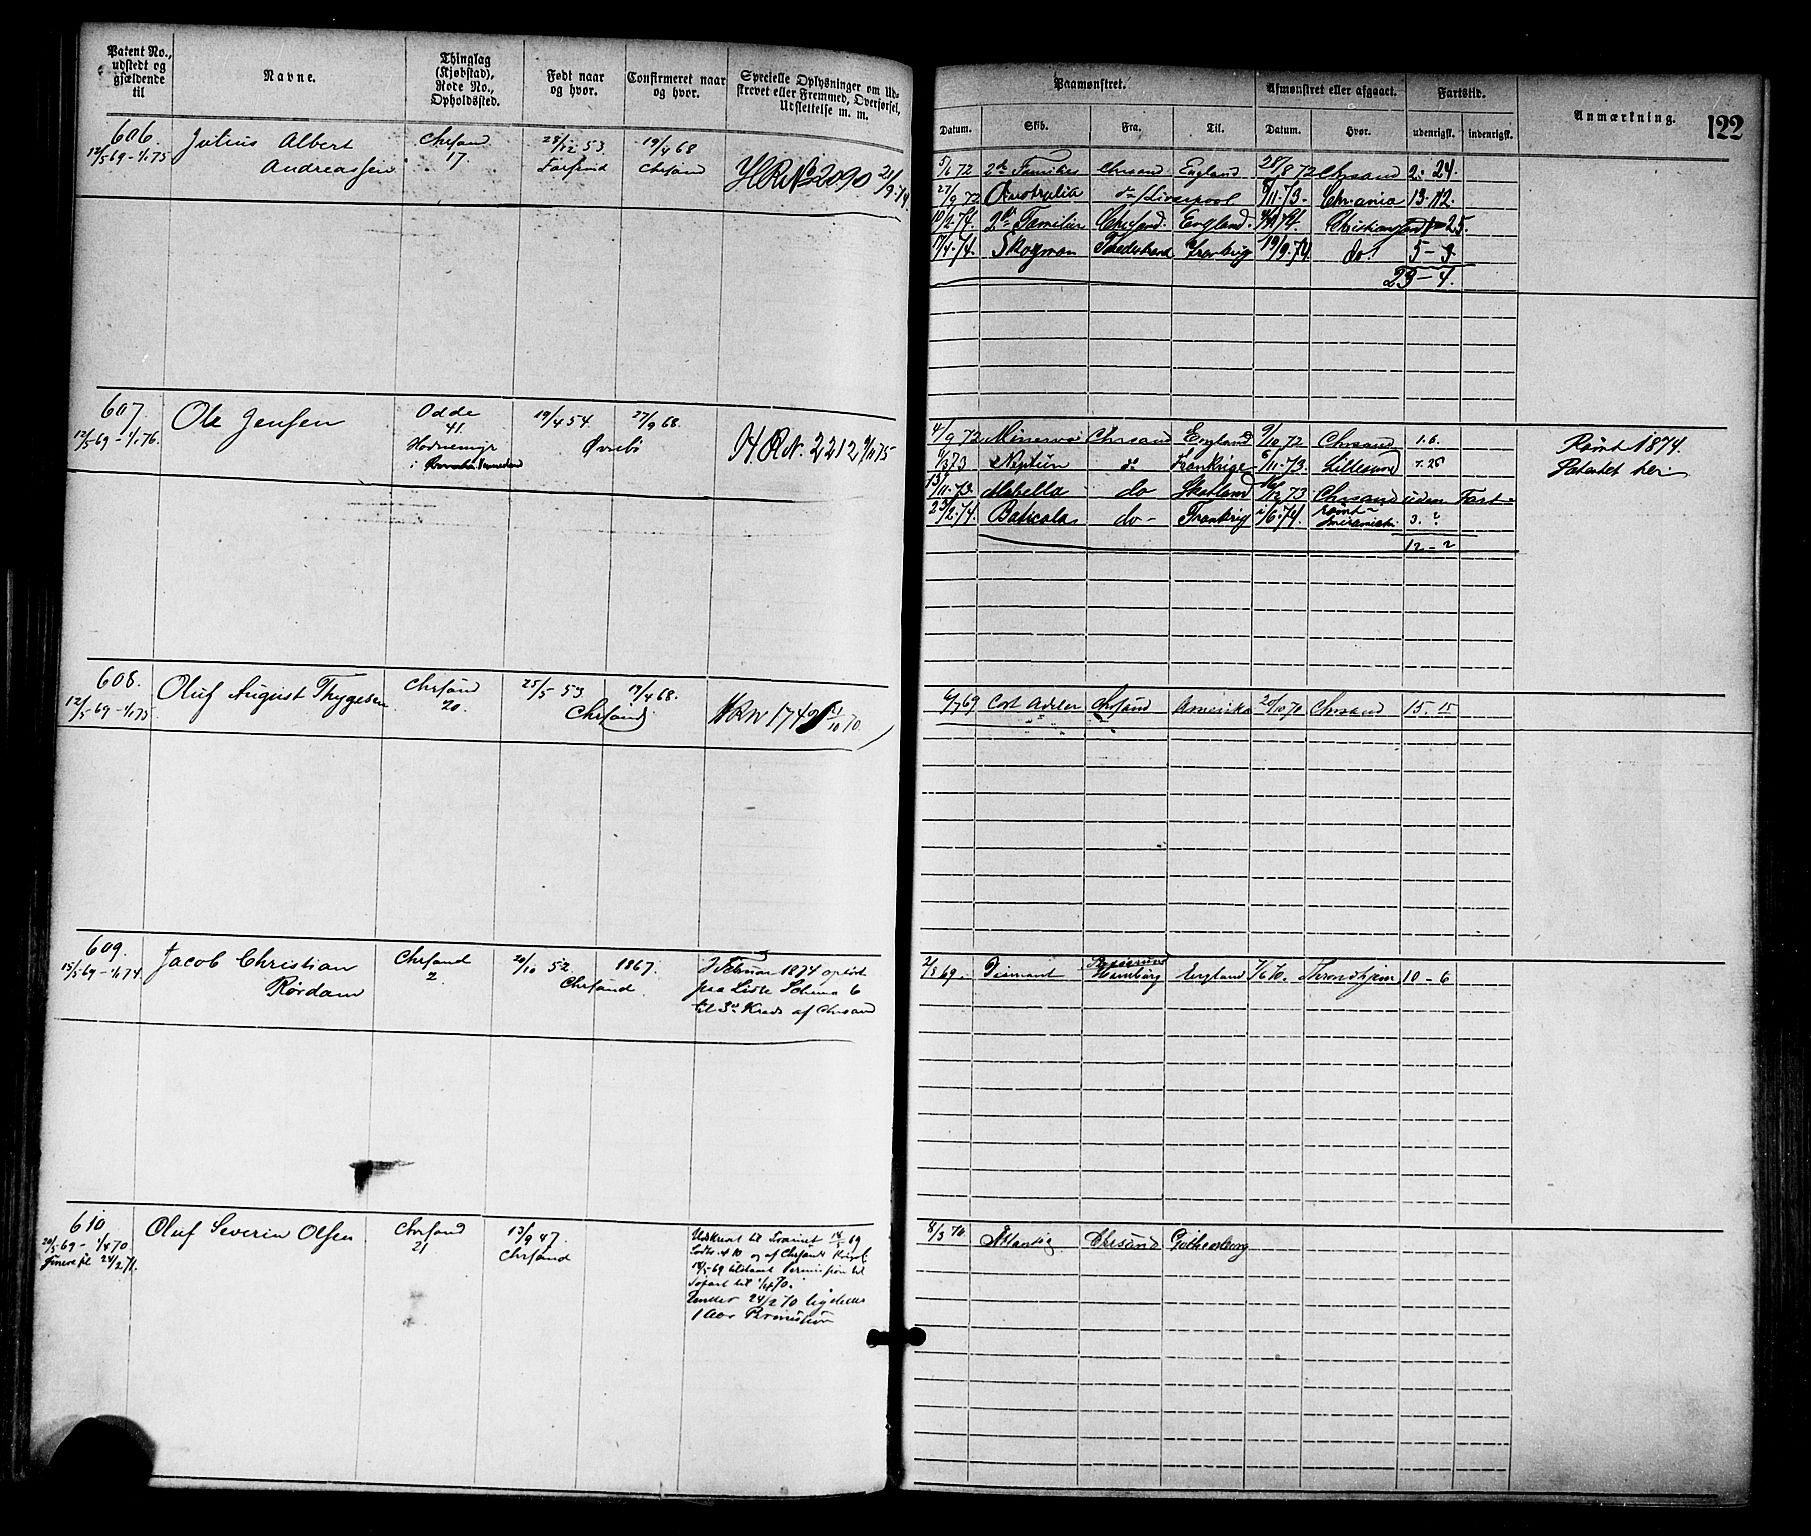 Patent No., udstedt og gjældende til
Navne.
Thinglag (Kjøbstad), Rode No., Opholdssted.
Født naar og hvor.
Confirmeret naar og hvor.
Specielle Oplysninger om Udskrevet eller Fremmed, Overførsel, Udslettelse m. m.
Paamønstret.
Afmønstret eller afgaaet.
Fartstid.
Anmærkning.
122
Datum. Skib. Fra. Til. Datum. Hvor. udenrigsk. indenrigsk.
606. Julius Albert Andreassen Chrsand 17 28/12 53 19/4 68 Chrsand H.R.No 2090 21/9 74
12/5 69 - 1/1 75
5/6 72 2de Familier Chrsand England 28/8 72 Chrsand 2. 24.
27/9 72 Australia do Liverpool 8/11 73 Chr.ania 13. 12.
10/2 74. 2de Familier Chrsand. England. Christiansand 1 - 25.
17/4 74. Skogman Tvedestrand Frankrig 19/9 74 do. 5 - 3
23 - 4.
607. Ole Jensen Odde 41. 19/4 54 27/9 68. Øvrebø H.R.N. 2212 75
12/5 69 - 1/1 76.
4/9 72 Minerva Chrsand England 9/10 72 Chrsand 1. 6. Rømt 1874.
3 73 Neptun do Frankrige 6/11 73. Lillesand 7. 25 Patentet her.
13/11 73. Mabella do Skotland 12 73 Chrsand uden Fart
2 74. do Frankrig 6. 74. rømt 3. ?
12 - ?
608. Oluf August Thygesen Chrsand 20. 25/5 53 19/4 68. Chrsand. HRN 1740 21/10 70.
12/5 69 - 1/1 75.
6/7 69 Cort Adeler Chrsand Amerika 20/10 70 Chrsand 15. 15
609. Jacob Christian Rørdam Chrsand 2. 20/10 52. 1867. Chrsand.
15/5 69 - 1/1 74.
I Februar 1874 opført
paa Liste Schema 6
til 3die Kreds af Chrsand
2/8 69. Diamant Hamburg England 7/6 70. Throndhjem 10 - 6
610 Oluf Severin Olsen Chrsand 21 13/9 47. Chrsand
20/5 69 - 1/4 70
24/2 71.
Udskrevet til Trainet 69
Lodtr. No 10 og af Chrsands
18/5 69 tildelt Permission til
Søfart til 1/4 70.
Under 24/2 70 ligeledes
1 Aar Permission
8/3 70. Atlantic Chrsand Gothenborg